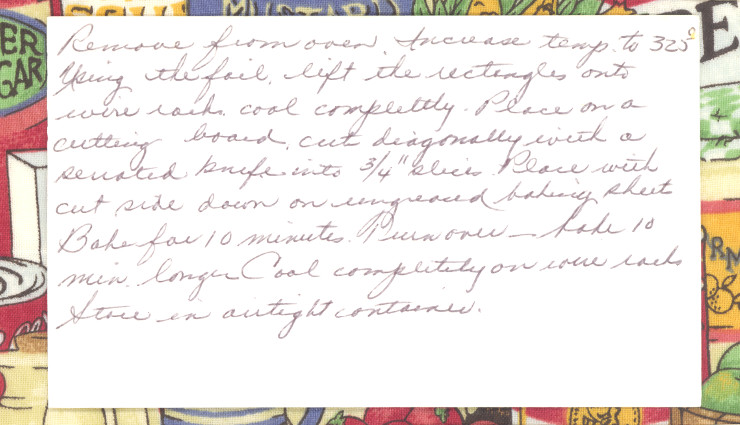 Remove from oven. Increase temp. to 325°
Using the foil, lift the rectangles onto
wire racks. cool completly. Place on a
cutting board, cut diagonally with a
serrated knife into 3/4" slices. Place with
cut side down on ungreased baking sheet
Bake for 10 minutes. Turn over - bake 10
min. longer Cool completely on wire racks
Store in airtight container.
ER
GAR
E
RM